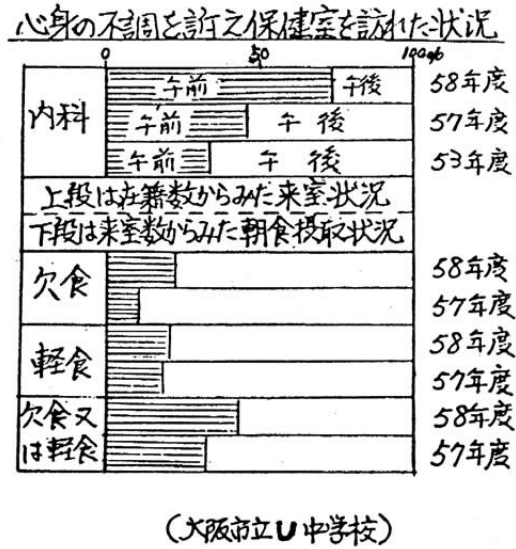 心身の不調を訴え保健室を訪れた状況
0 50 100%
内科
午前 午後 58年度
午前 午後 57年度
午前 午後 53年度
上段は在籍数からみた来室状況
下段は来室数からみた朝食摂取状況
欠食
58年度
57年度
軽食
58年度
57年度
欠食又は軽食
58年度
57年度
(大阪市立U中学校)